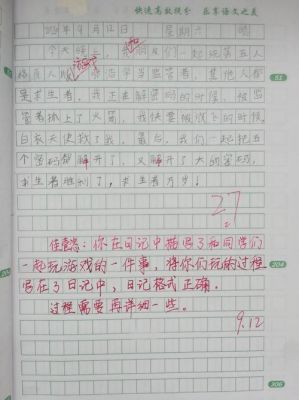 快速高效提分 乐享语文之美
9月12日 星期六 晴
今天晚上 我和 我们 一起玩第五人
格真人版 当监管者 其他人都
是求生者 我正在解密码的时候 被监
管者抓上了火箭 我快要被放飞的时候
白衣天使救了我 最后 我们一起把五
个密码都解开了 又解开了大的密码
求生者胜利了 求生者万岁!
27
你在日记中描写了和同学们
一起玩游戏的一件事,将你们玩的过程
写在了日记中,日记格式正确。
过程需要再详细一些。
9.12
204
206